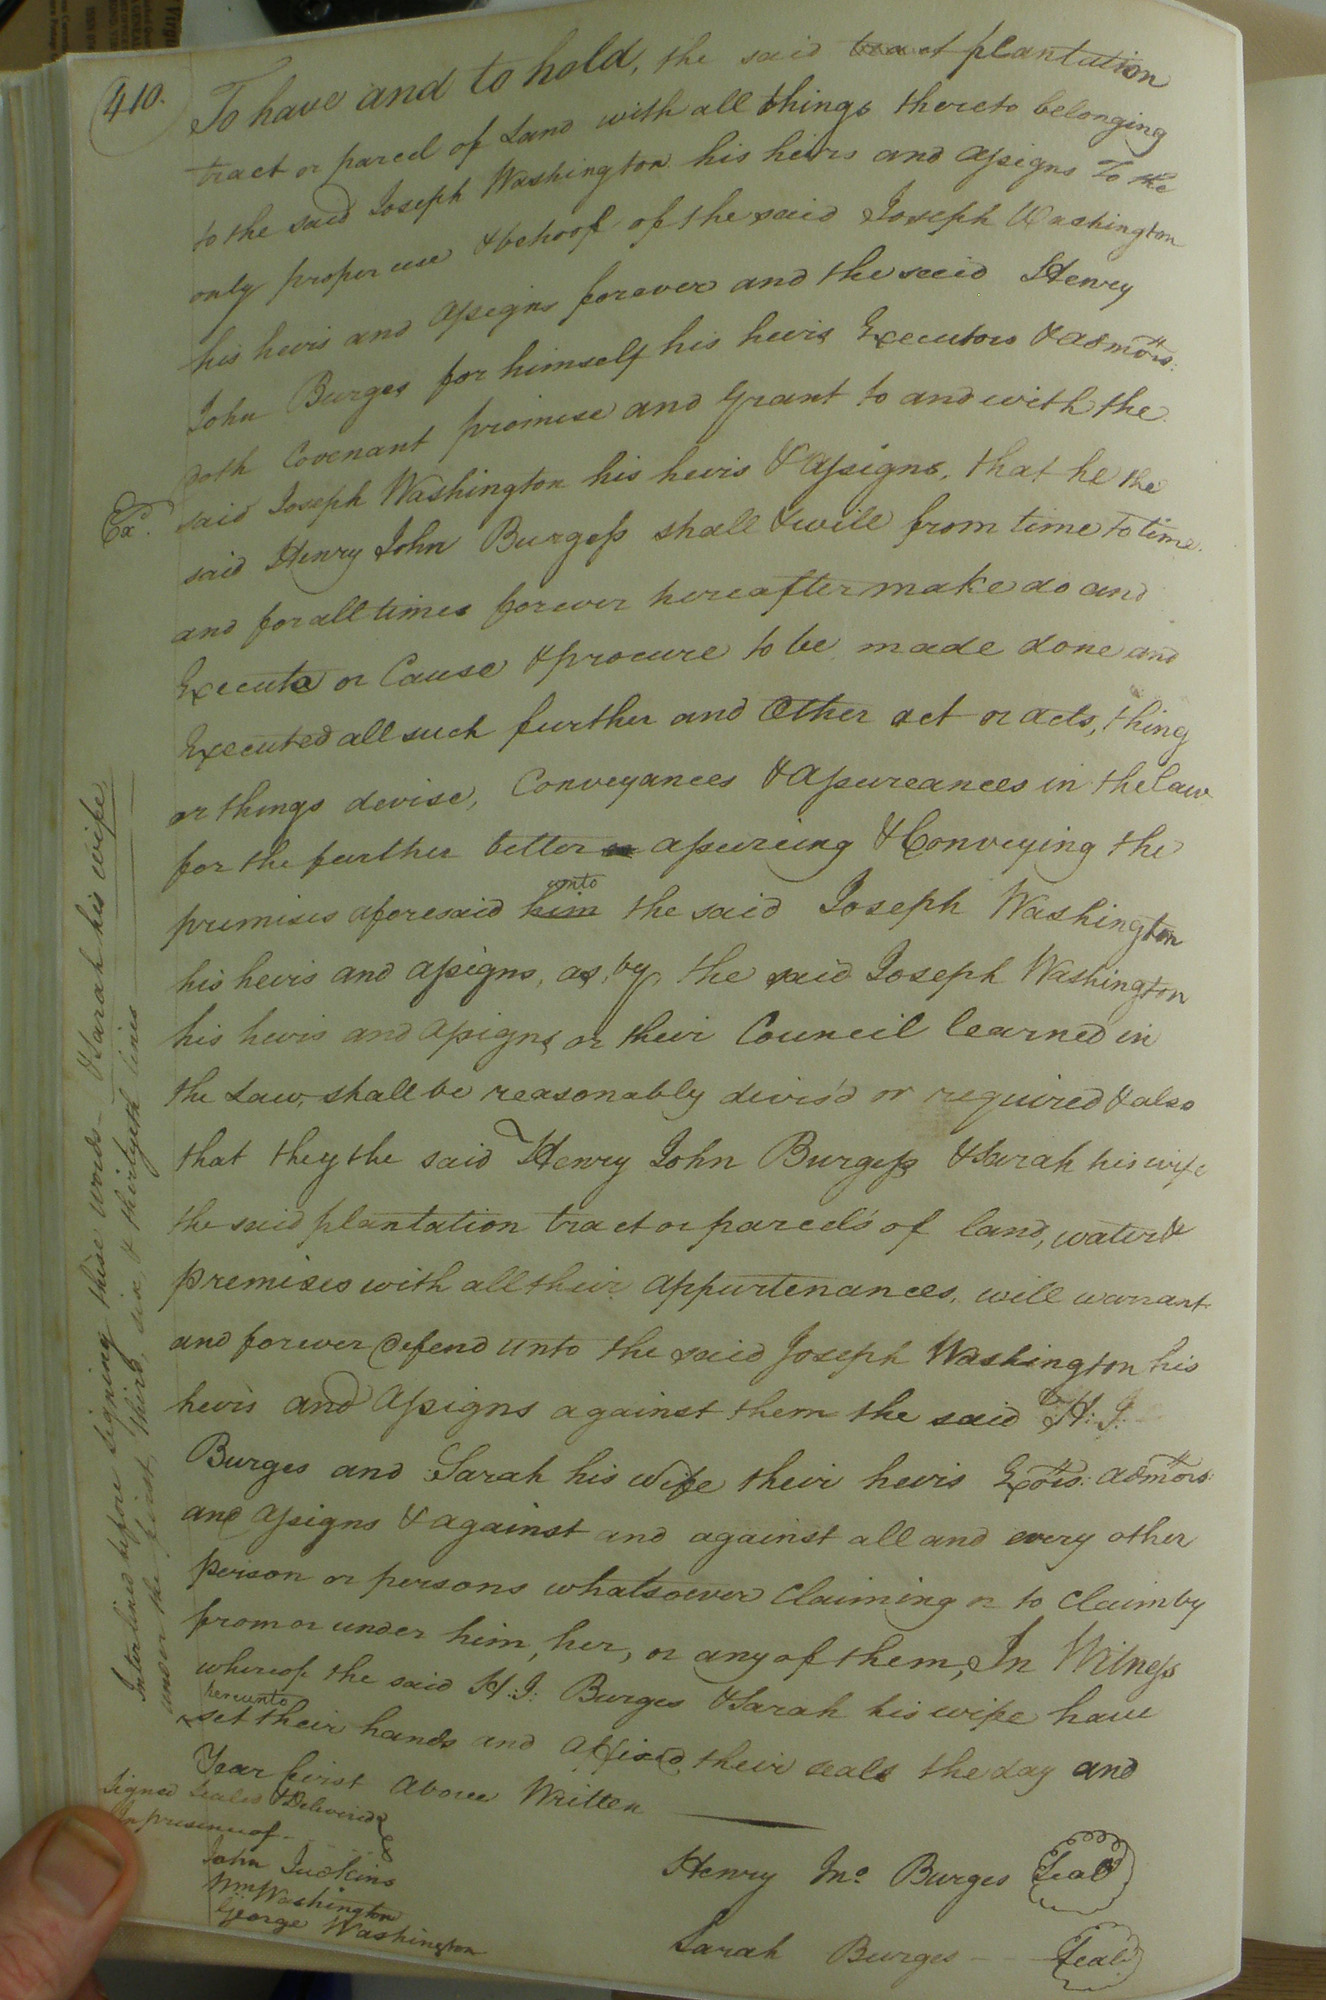 410.
To have and to hold, the said tract plantation
tract or parcel of Land with all things thereto belonging
to the said Joseph Washington his heirs and assigns To the
only proper use & behoof of the said Joseph Washington
his heirs and assigns forever and the said Henry
John Burges for himself his heirs Executors & admors:
doth Covenant promise and grant to and with the
said Joseph Washington his heirs & assigns, that he the
Exd. said Henry John Burgess shall & will from time to time
and for all times forever hereafter make do and
Execute or Cause & procure to be made done and
Executed all such further and Other act or acts, thing
or things devise, Conveyances & assureances in the law
for the further better assureing & Conveying the
unto
premises aforesaid him the said Joseph Washington
his heirs and assigns, as, by, the said Joseph Washington
his heirs and assigns or their Council learned in
the Law, shall be reasonably devis'd or required & also
that they the said Henry John Burgess & Sarah his wife
the said plantation tract or parcels of land, water &
premises with all their appurtenances, will warrant
and forever defend unto the said Joseph Washington his
heirs and assigns against them the said H: J:
Burges and Sarah his wife their heirs Exors: admors:
and assigns & against and against all and every other
person or persons whatsoever Claiming or to Claim by
from or under him, her, or any of them, In Witness
whereof the said H: J: Burges & Sarah his wife have
hereunto
set their hands and affixed their seals the day and
Year first Above Written
Signed Sealed & Delivered
In presence of
John Judkins
Wm Washington
George Washington
Henry Jno. Burges Seal
Sarah Burges Seal
Interlined before signing these words & Sarah his wife
under the first, third, six, & thirtyeth lines